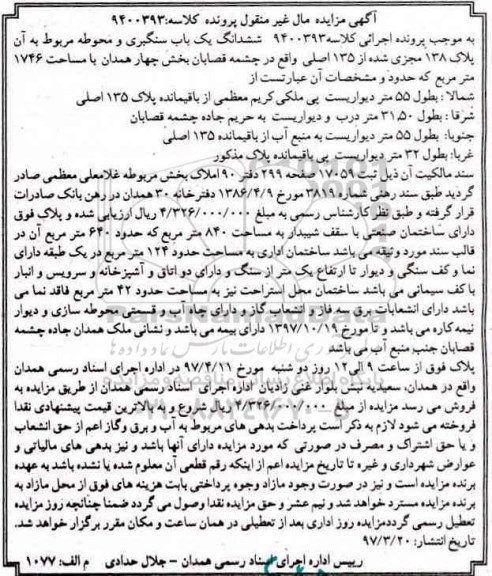 آگهی مزایده مال غیر منقول پرونده کلاسه:۹۴۰۰۳۹۳
به موجب پرونده اجرائی کلاسه۹۴۰۰۳۹۳ ششدانگ یک باب سنگبری و محوطه مربوط به آن
پلاک ۱۳۸ مجزی شده از ۱۳۵ اصلی واقع در چشمه قصابان بخش چهار همدان با مساحت ۱۷۴۶
متر مربع که حدود و مشخصات آن عبارتست از
شمالا : بطول ۵۵ متر دیواریست پی ملکی کریم معظمی از باقیمانده پلاک ۱۳۵ اصلی
شرقا : بطول ۳۱،۵۰ متر درب و دیواریست به حریم جاده چشمه قصابان
جنوبا: بطول ۵۵ متر دیواریست به منبع آب از باقیمانده ۱۳۵ اصلی
غربا: بطول ۳۲ متر دیواریست پی باقیمانده پلاک مذکور
سند مالکیت آن ذیل ثبت ۱۷۰۵۹ صفحه ۲۹۹ دفتر ۹۰ املاک بخش مربوطه غلامعلی معظمی صادر
گردید طبق سند رهنی شماره ۳۸۱۹ مورخ ۱۳۸۶/۴/۹ دفترخانه ۳۰ همدان در رهن بانک صادرات
قرار گرفته و طبق نظر کارشناس رسمی به مبلغ ۴/۳۲۶/۰۰۰/۰۰۰ ریال ارزیابی شده و پلاک فوق
دارای ساختمان صنعتی با سقف شیبدار به مساحت ۸۴۰ متر مربع که حدود ۶۴۰ متر مربع آن در
قالب سند مورد وثیقه می باشد ساختمان اداری به مساحت حدود ۱۲۴ متر مربع در یک طبقه دارای
نما و کف سنگی و دیوار تا ارتفاع یک متر از سنگ و دارای دو اتاق و آشپزخانه و سرویس و انبار
با کف سیمانی می باشد ساختمان محل استراحت نیز به مساحت حدود ۴۲ متر مربع فاقد نما می
باشد دارای انشعابات برق سه فاز و انشعاب گاز و دارای چاه آب و قسمتی محوطه سازی و دیوار
نیمه کاره می باشد و تا مورخ ۱۳۹۷/۱۰/۱۹ دارای بیمه می باشد و نشانی ملک همدان جاده چشمه
قصابان جنب منبع آب می باشد
پلاک فوق از ساعت ۹ الی ۱۲ روز دو شنبه مورخ ۹۷/۴/۱۱ در اداره اجرای اسناد رسمی همدان
واقع در همدان، سعیدیه نبش بلوار علی زادیان اداره اجرای اسناد رسمی همدان از طریق مزایده به
فروش می رسد مزایده از مبلغ ریال شروع و به بالاترین قیمت پیشنهادی نقدا
فروخته می شود لازم به ذکر است پرداخت بدهی های مربوط به آب و برق وگاز اعم از حق انشعاب
و یا حق اشتراک و مصرف در صورتی که مورد مزایده دارای آنها باشد و نیز بدهی های مالیاتی و
عوارض شهرداری و غیره تا تاریخ مزایده اعم از اینکه رقم قطعی آن معلوم شده یا نشده باشد به عهده
برنده مزایده است و نیز در صورت وجود مازاد وجوه پرداختی بابت هزینه های فوق از محل مازاد به
برنده مزایده مسترد خواهد شد و نیم عشر و حق مزایده نقدا وصول می گردد ضمنا چنانچه روز مزایده
تعطیل رسمی گرددمزایده روز اداری بعد از تعطیلی در همان ساعت و مکان مقرر برگزار خواهد شد.
تاریخ انتشار: ۹۷/۳/۲۰
رییس اداره اجرای اسناد رسمی همدان - جلال حدادی م الف: ۱۰۷۷